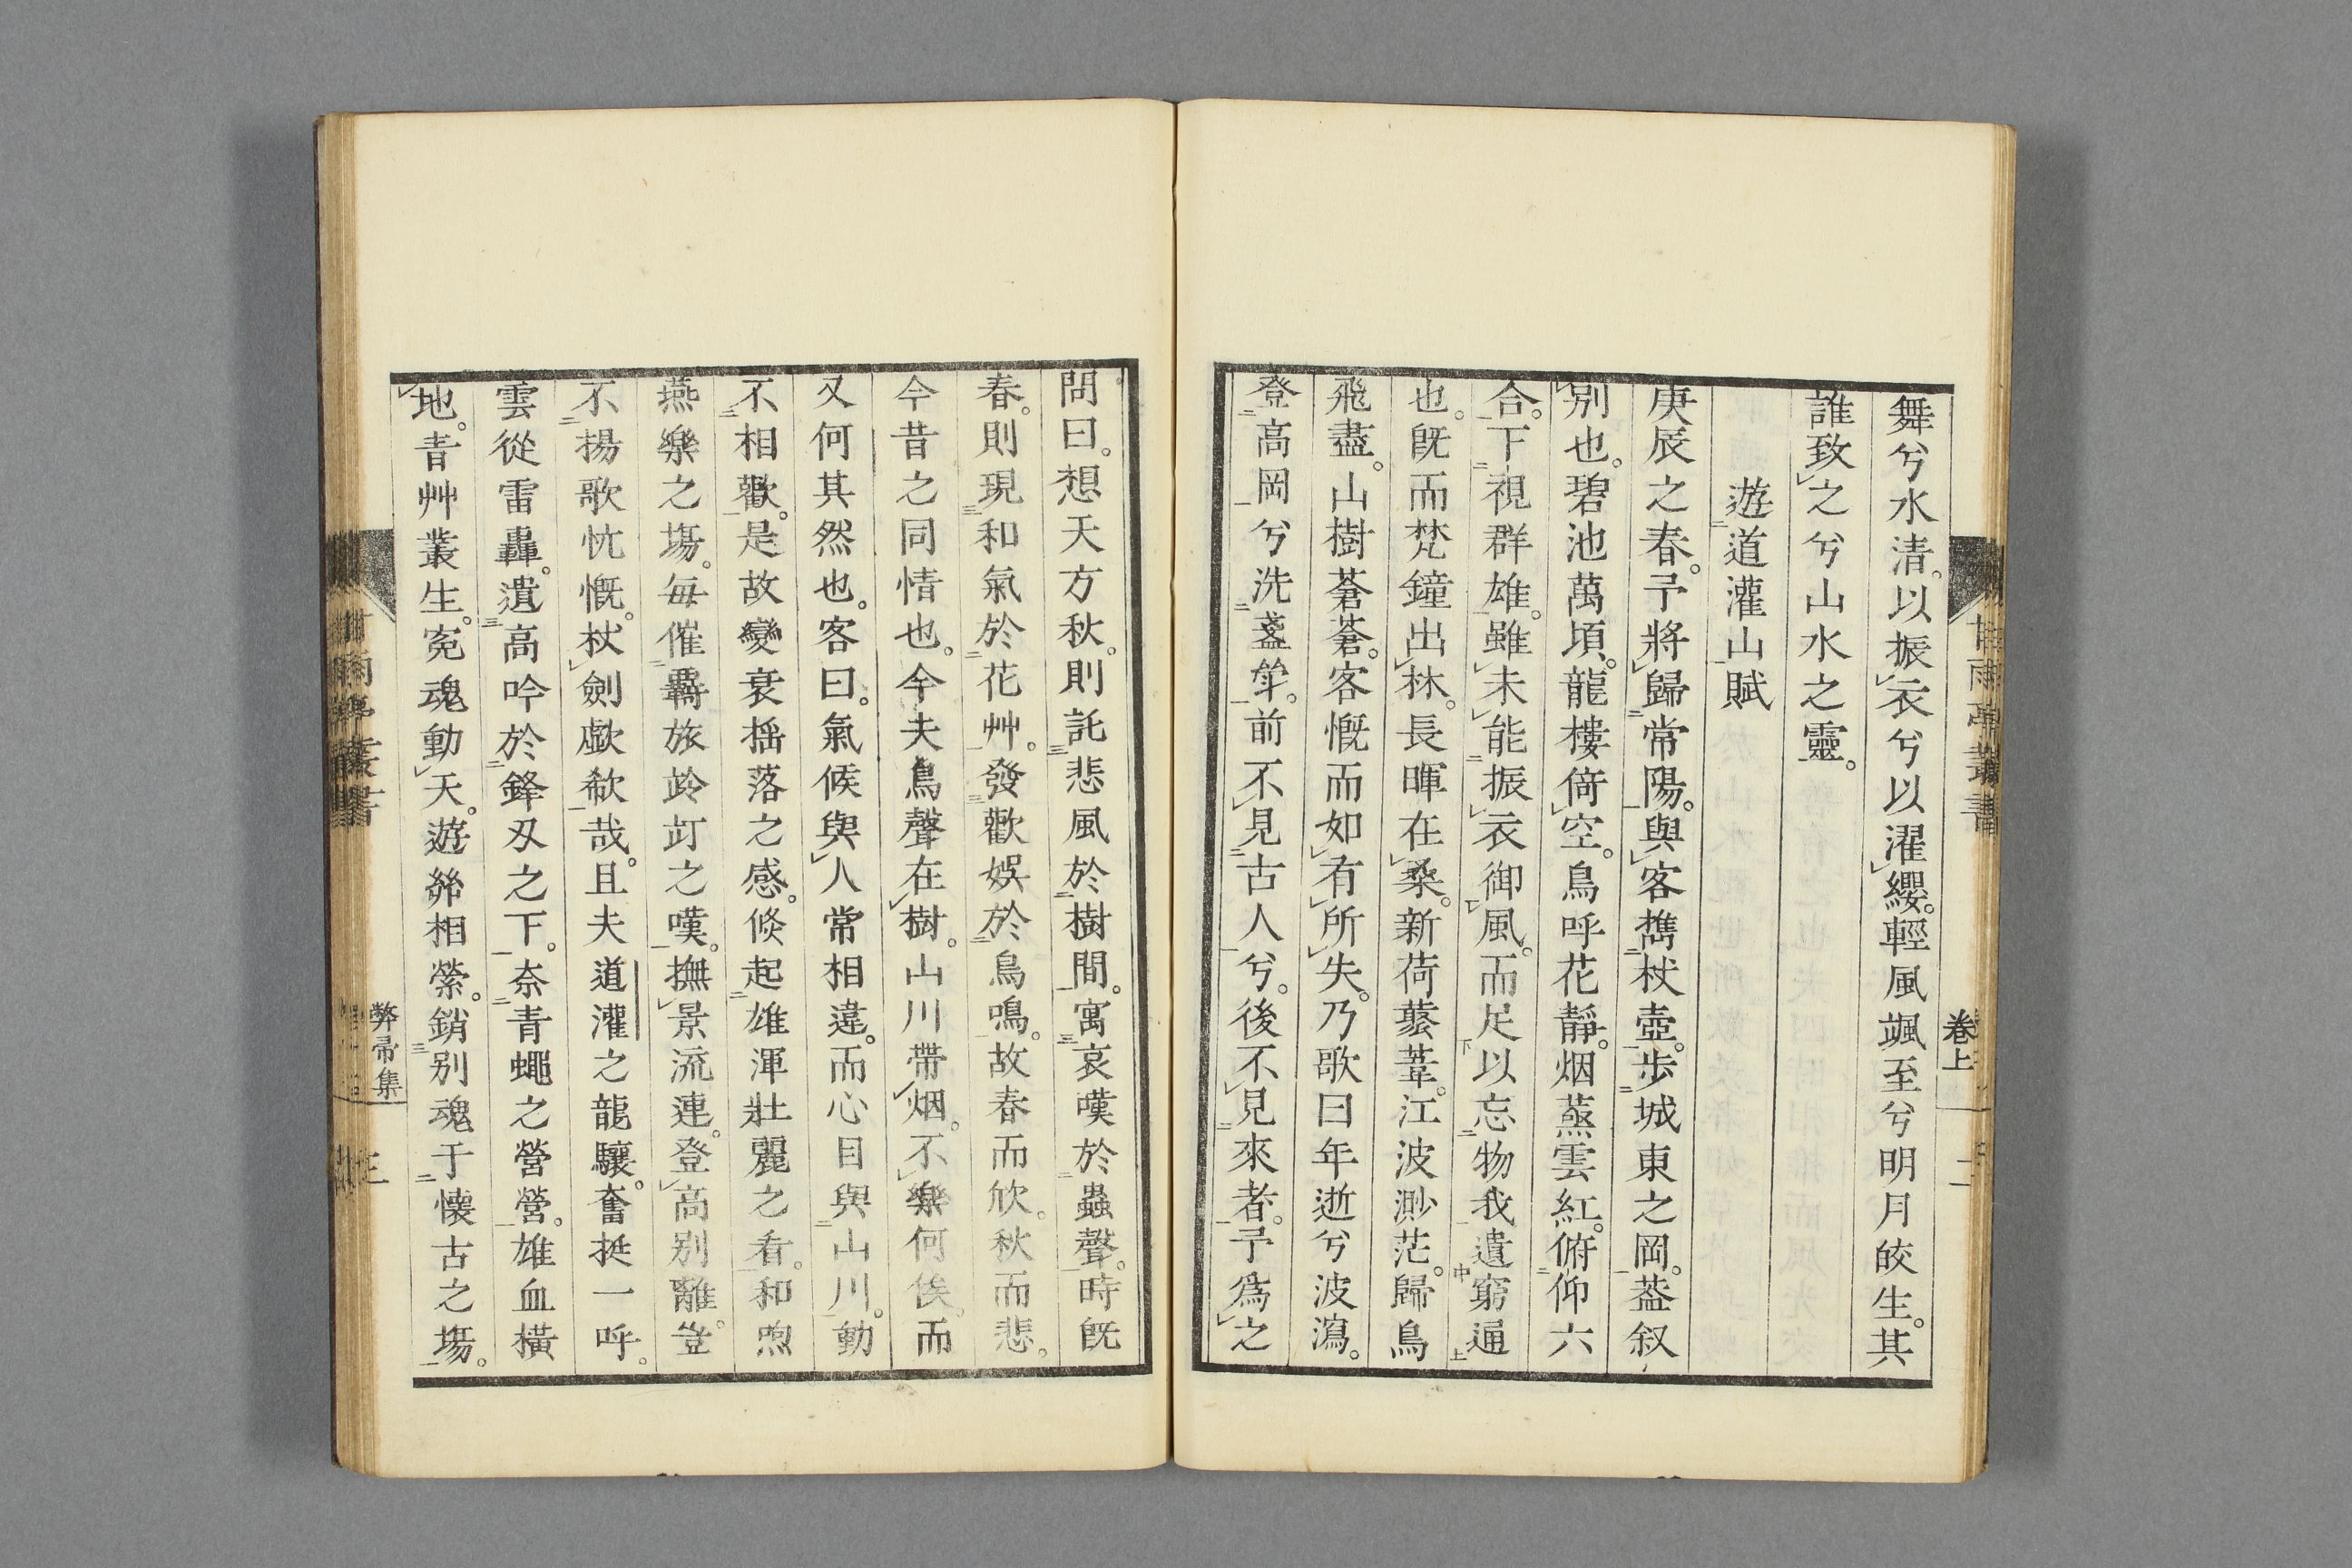 舞兮水清。以振衣兮以濯纓。輕風颯至兮明月皎生。其
誰致之兮山水之靈。
遊道灌山賦
庚辰之春。予將歸常陽。與客携杖壺。步城東之岡。葢叙
別也。碧池萬頃。龍樓倚空。鳥呼花靜。烟蒸雲紅。俯仰六
合。下視群雄。雖未能振衣御風。而足以忘物我遺窮通
也。旣而梵鐘出林。長暉在桑。新荷叢葦。江波渺茫。歸鳥
飛盡。山樹蒼蒼。客慨而如有所失。乃歌曰年逝兮波瀉。
登高岡兮洗盞斝。前不見古人兮。後不見來者。予爲之
問曰。想天方秋。則託悲風於樹間。寓哀嘆於蟲聲。時旣
春。則現和氣於花艸。發歡娯於鳥鳴。故春而欣。秋而悲。
今昔之同情也。今夫鳥聲在樹。山川帶烟。不樂何俟。而
又何其然也。客曰。氣候與人常相違。而心目與山川。動
不相歡。是故變衰搖落之感。倐起雄渾壯麗之看。和煦
燕樂之塲。每催羇旅跉䟓之嘆。撫景流連。登高別離。豈
不揚歌忼慨。杖劍歔欷哉。且夫道灌之龍驤。奮挺一呼。
雲從雷轟。遺高吟於鋒刄之下。奈靑蠅之營營。雄血橫
地。靑艸叢生。寃魂動天。遊絲相縈。銷别魂于懐古之塲。
甘雨亭叢書
卷上
二
甘雨亭叢書
弊帚集
三